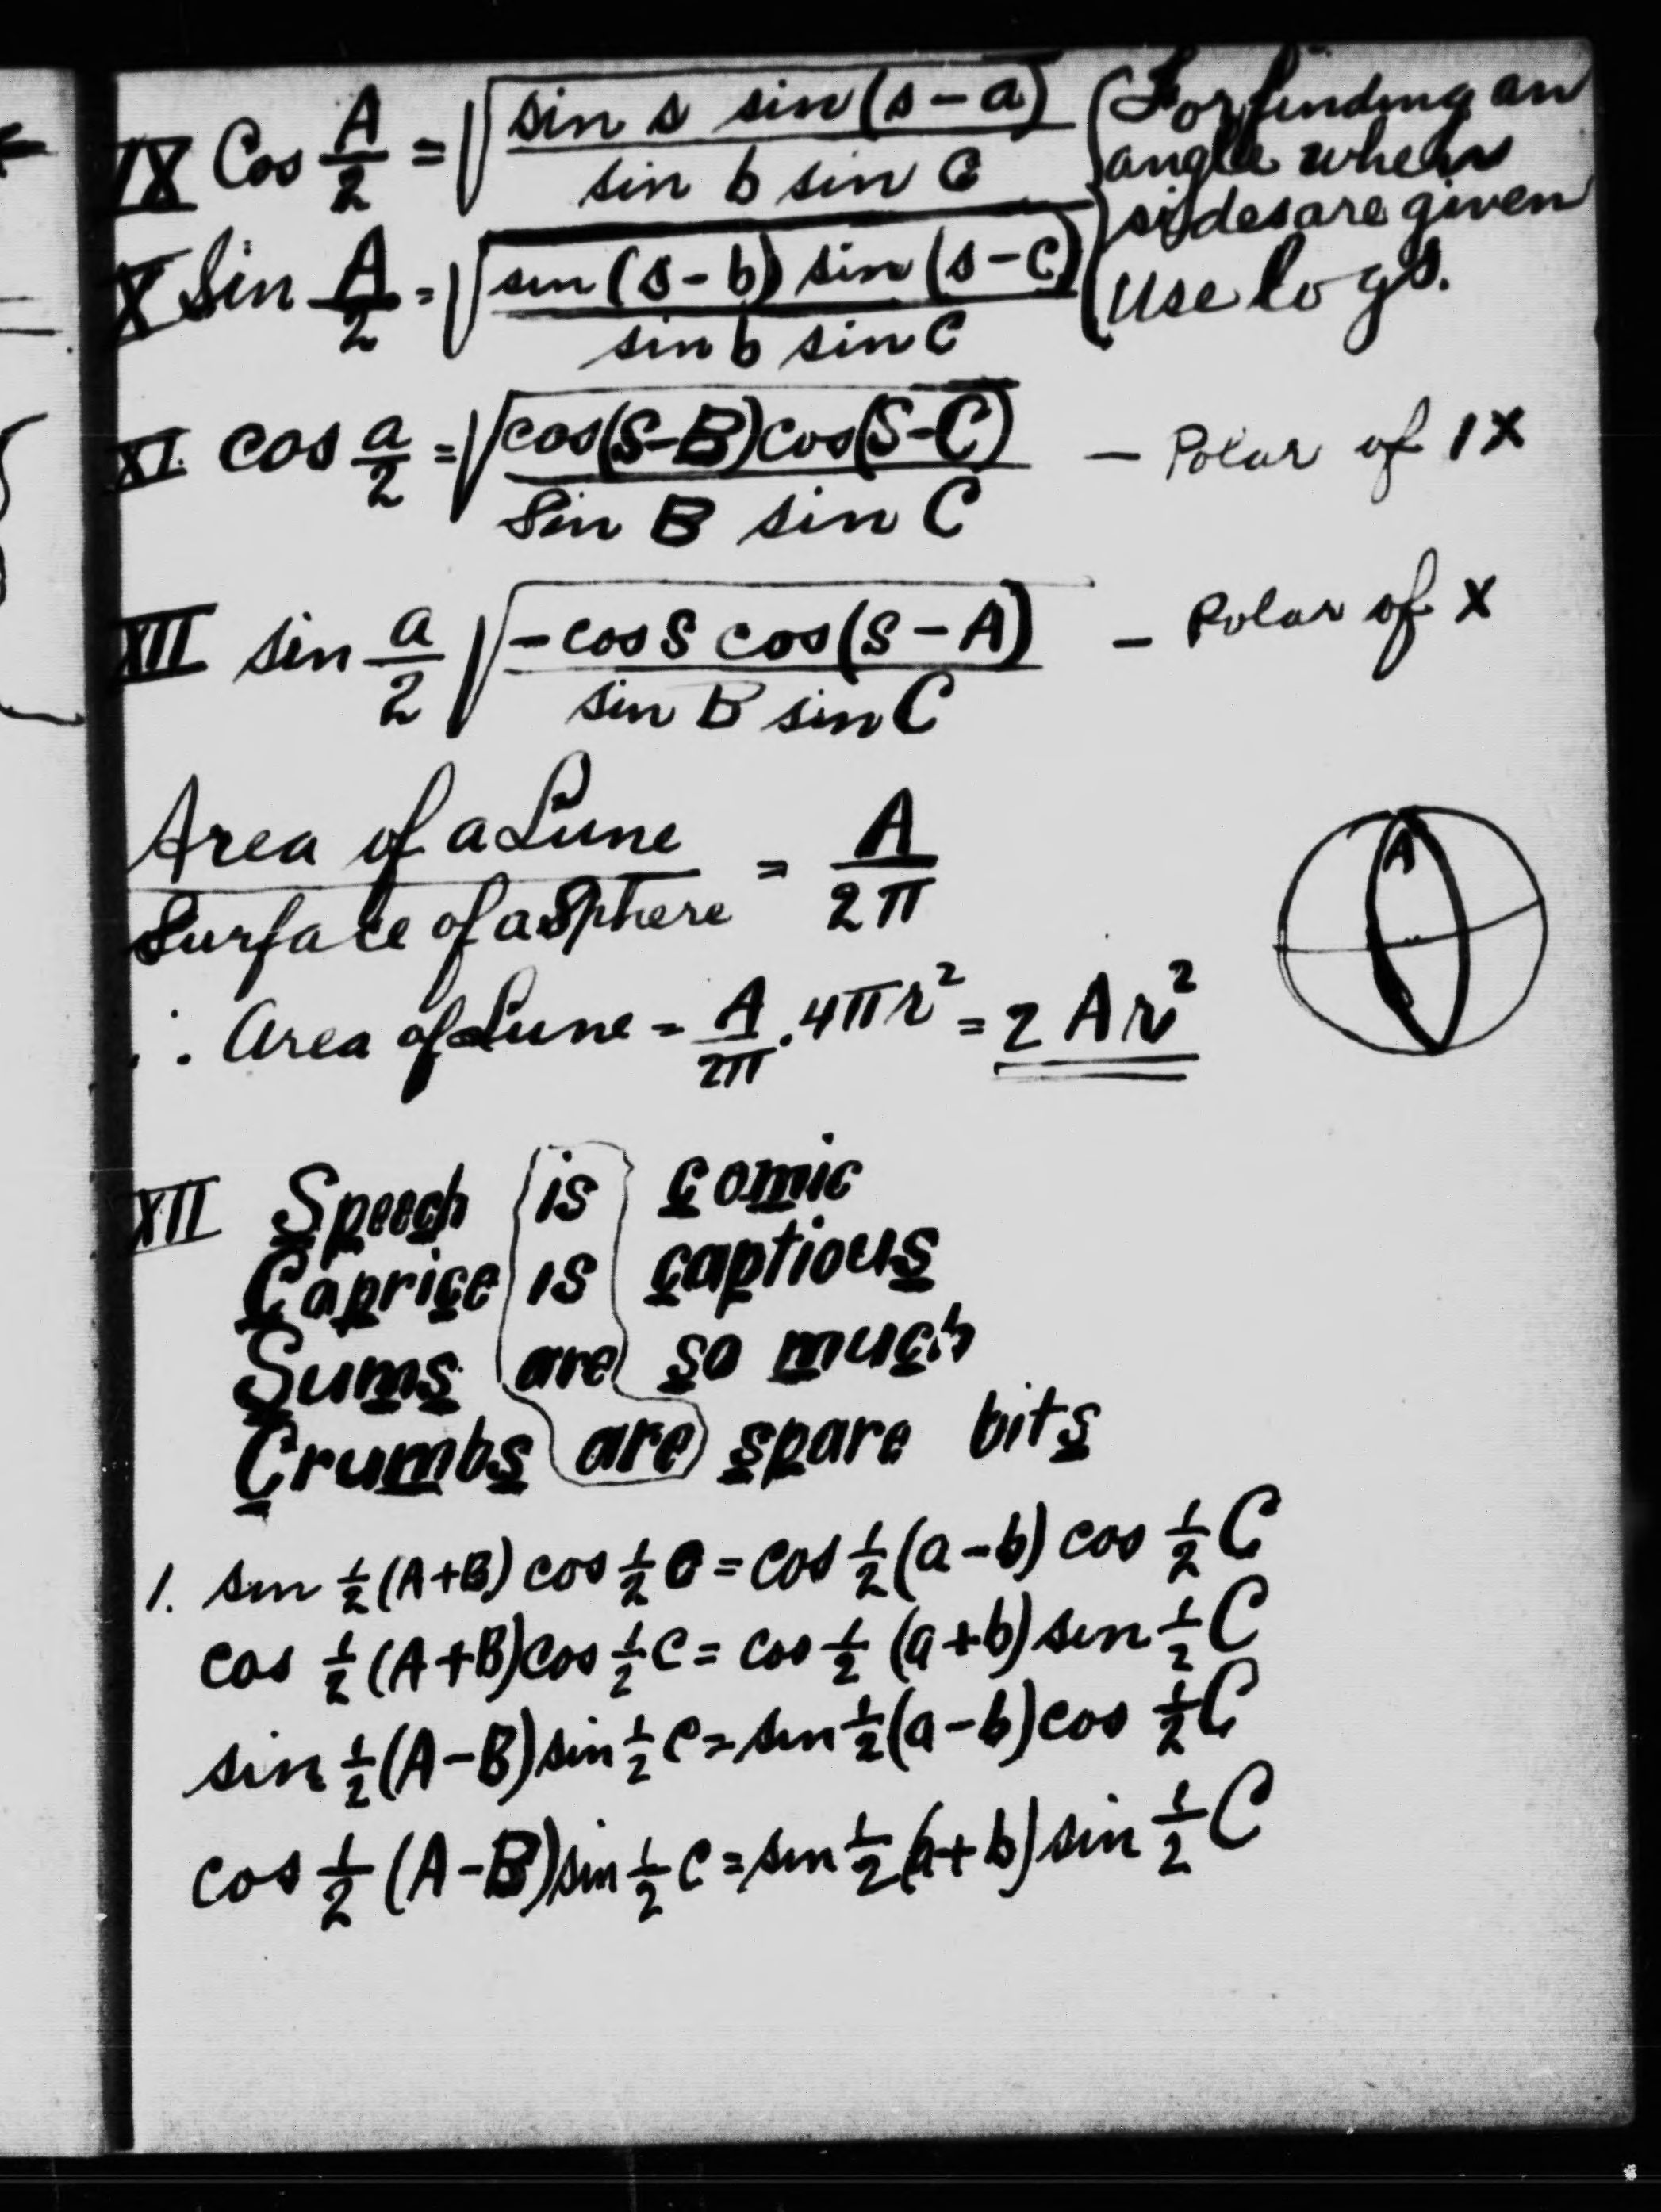 IX Cos A/2 = √(sin s sin (s-a) / sin b sin c) {For finding an
angle when
sides are given
X Sin A/2 = √(sin (s-b) sin (s-c) / sin b sin c) Use logs.
XI. cos a/2 = √(cos(S-B) cos(S-C) / Sin B sin C) — Polar of IX
XII sin a/2 √(-cos S cos (S-A) / sin B sin C) — Polar of X
Area of a Lune / Surface of a Sphere = A / 2π
A
∴ Area of Lune = A/2π . 4πr² = 2 A r²
XII Speech is comic
Caprice is captious
Sums are so much
Crumbs are spare bits
1. sin ½ (A+B) cos ½ c = cos ½ (a-b) cos ½ C
cos ½ (A+B) cos ½ c = cos ½ (a+b) sin ½ C
sin ½ (A-B) sin ½ c = sin ½ (a-b) cos ½ C
cos ½ (A-B) sin ½ c = sin ½ (a+b) sin ½ C